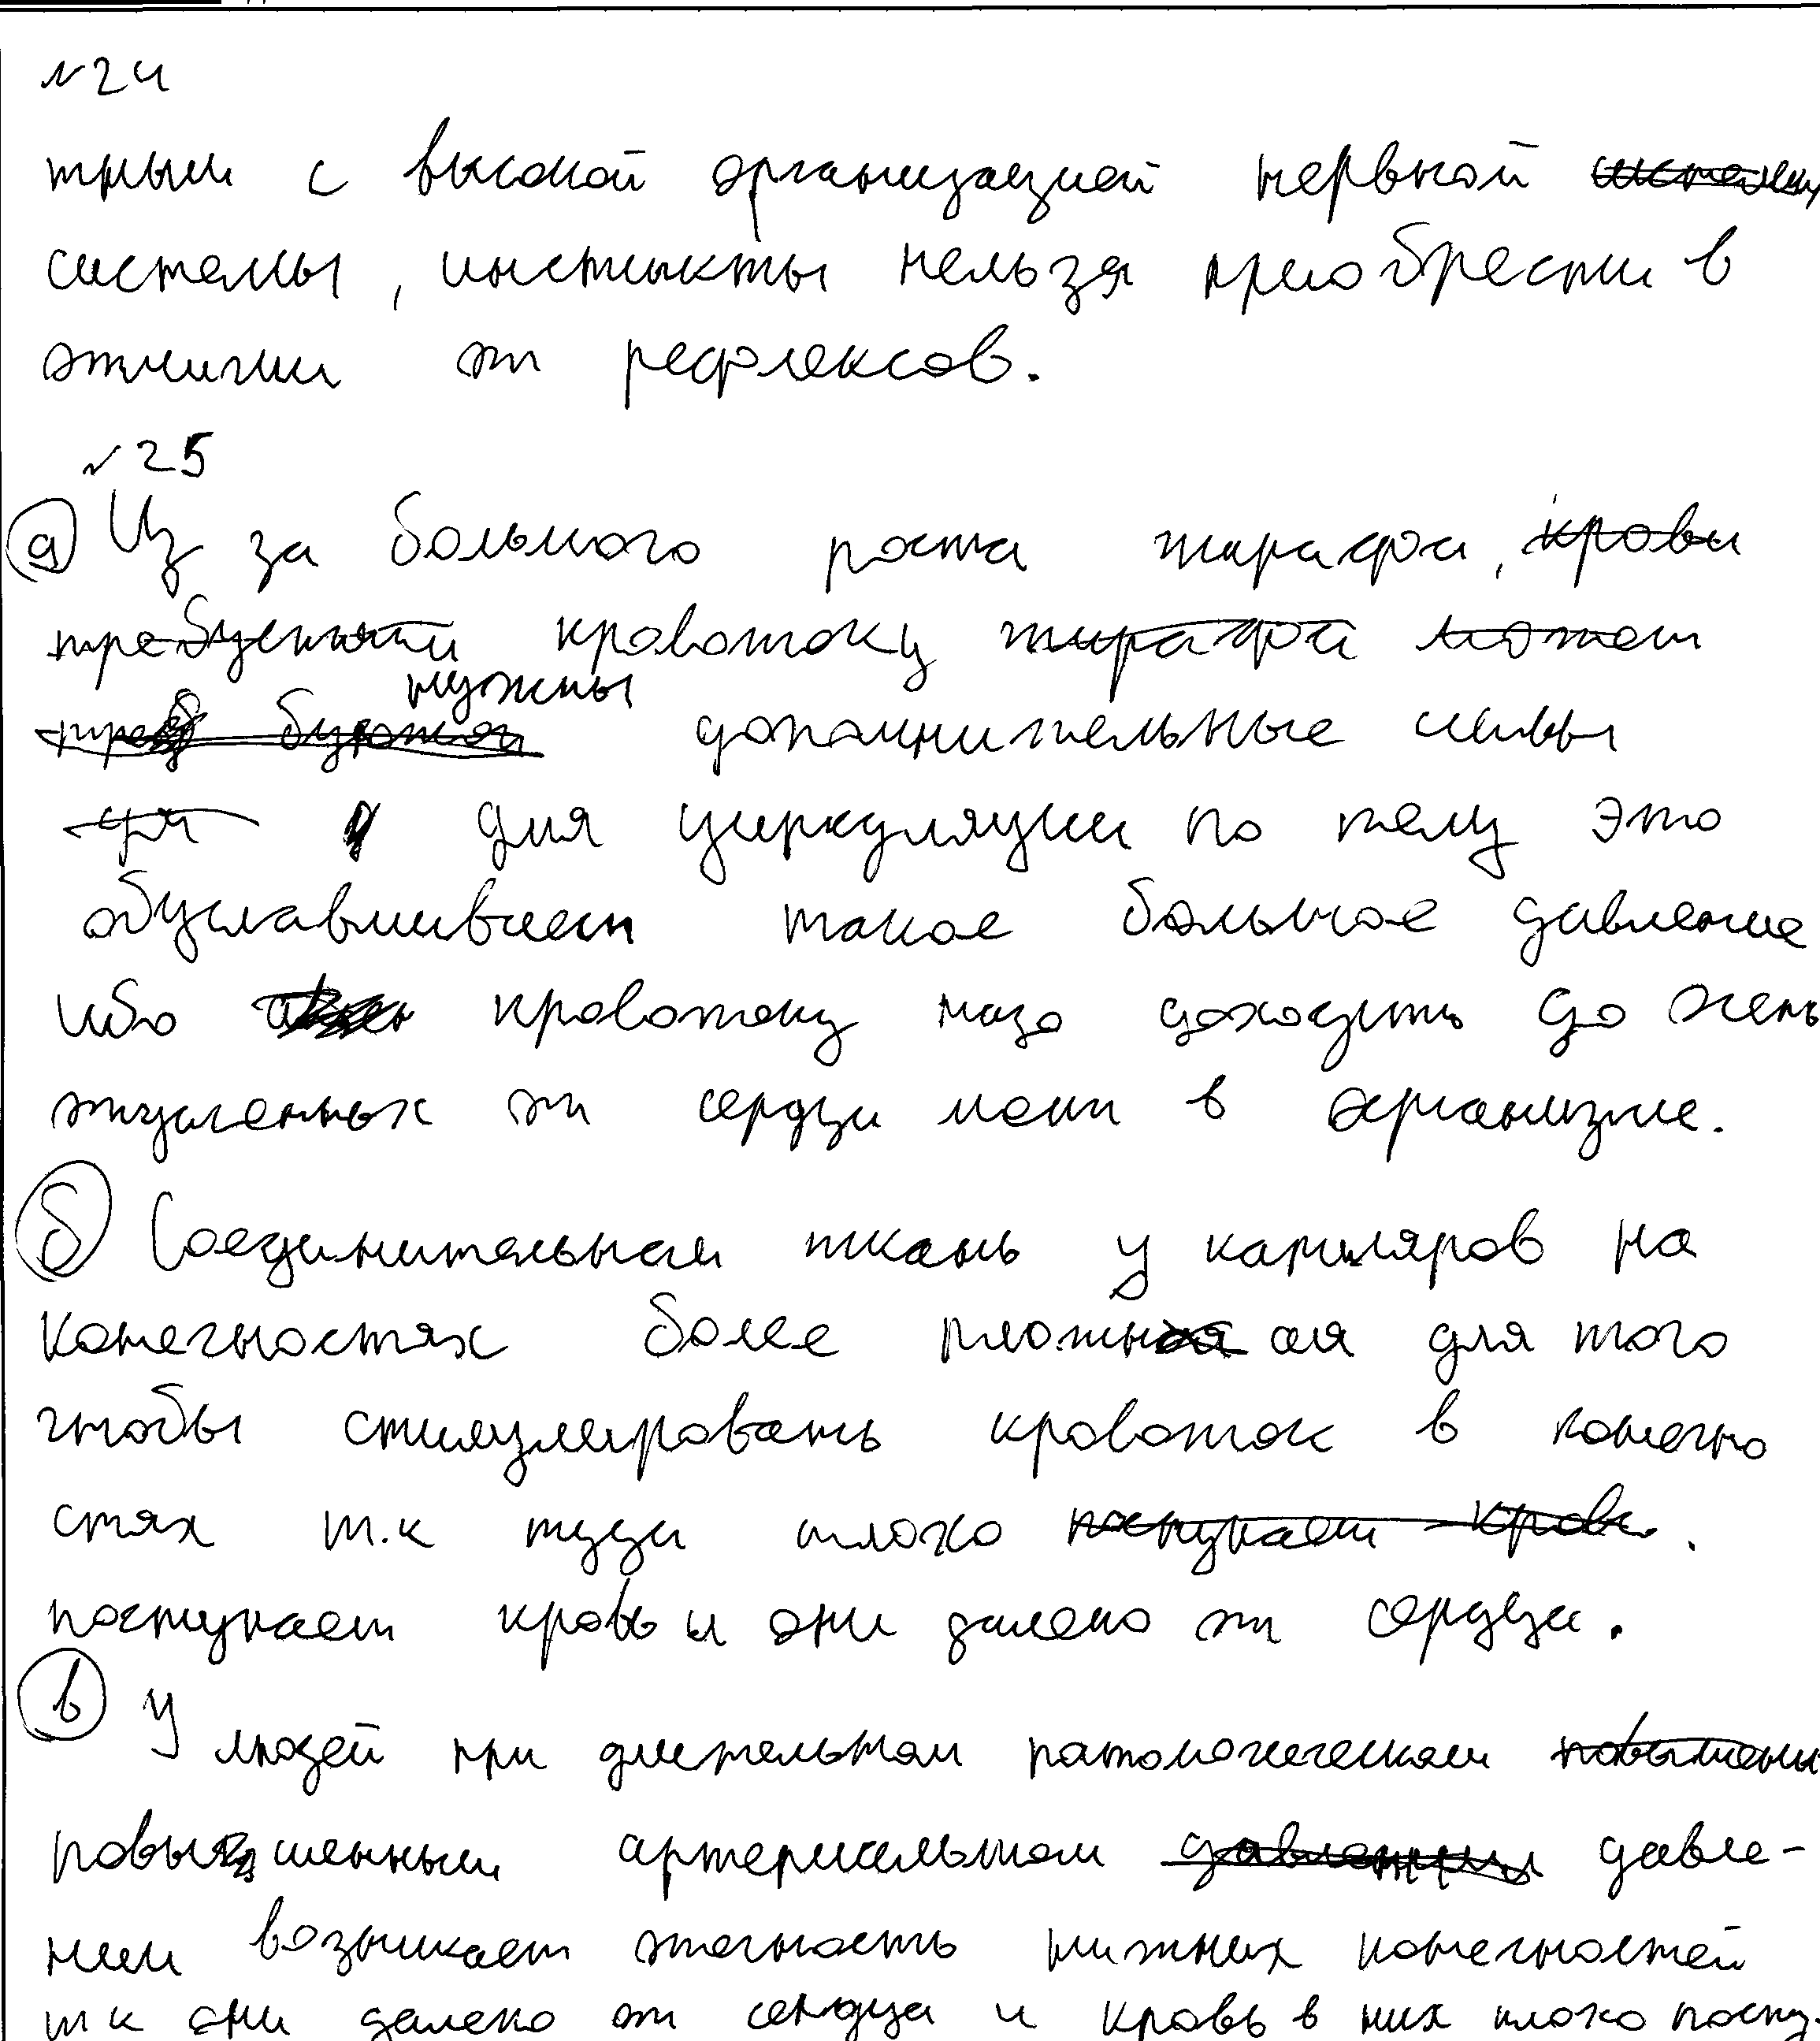 №24
тным с высокой организацией нервной
системы, инстикты нельзя приобрести в
отличии от рефлексов.
№25
а) Из за большого роста жирафа, крови
требуемый кровотоку жирафа может
нужны
требуются дополнительные силы
для циркуляции по телу это
обуславливает такое большое давление
ибо кровотоку надо доходить до очень
отдаленных от сердца мест в организме.
б) Соединительная ткань у капиляров на
конечностях более плотная ая для того
чтобы стимулировать кровоток в конечно
стях т.к туда плохо поступает кровь.
поступает кровь и они далеко от сердца.
в) У людей при длительном патологическом повышены
повышенным артериальном давлении давле-
нии возникает отечность нижних конечностей
тк они далеко от сердца и кровь в них плохо посту